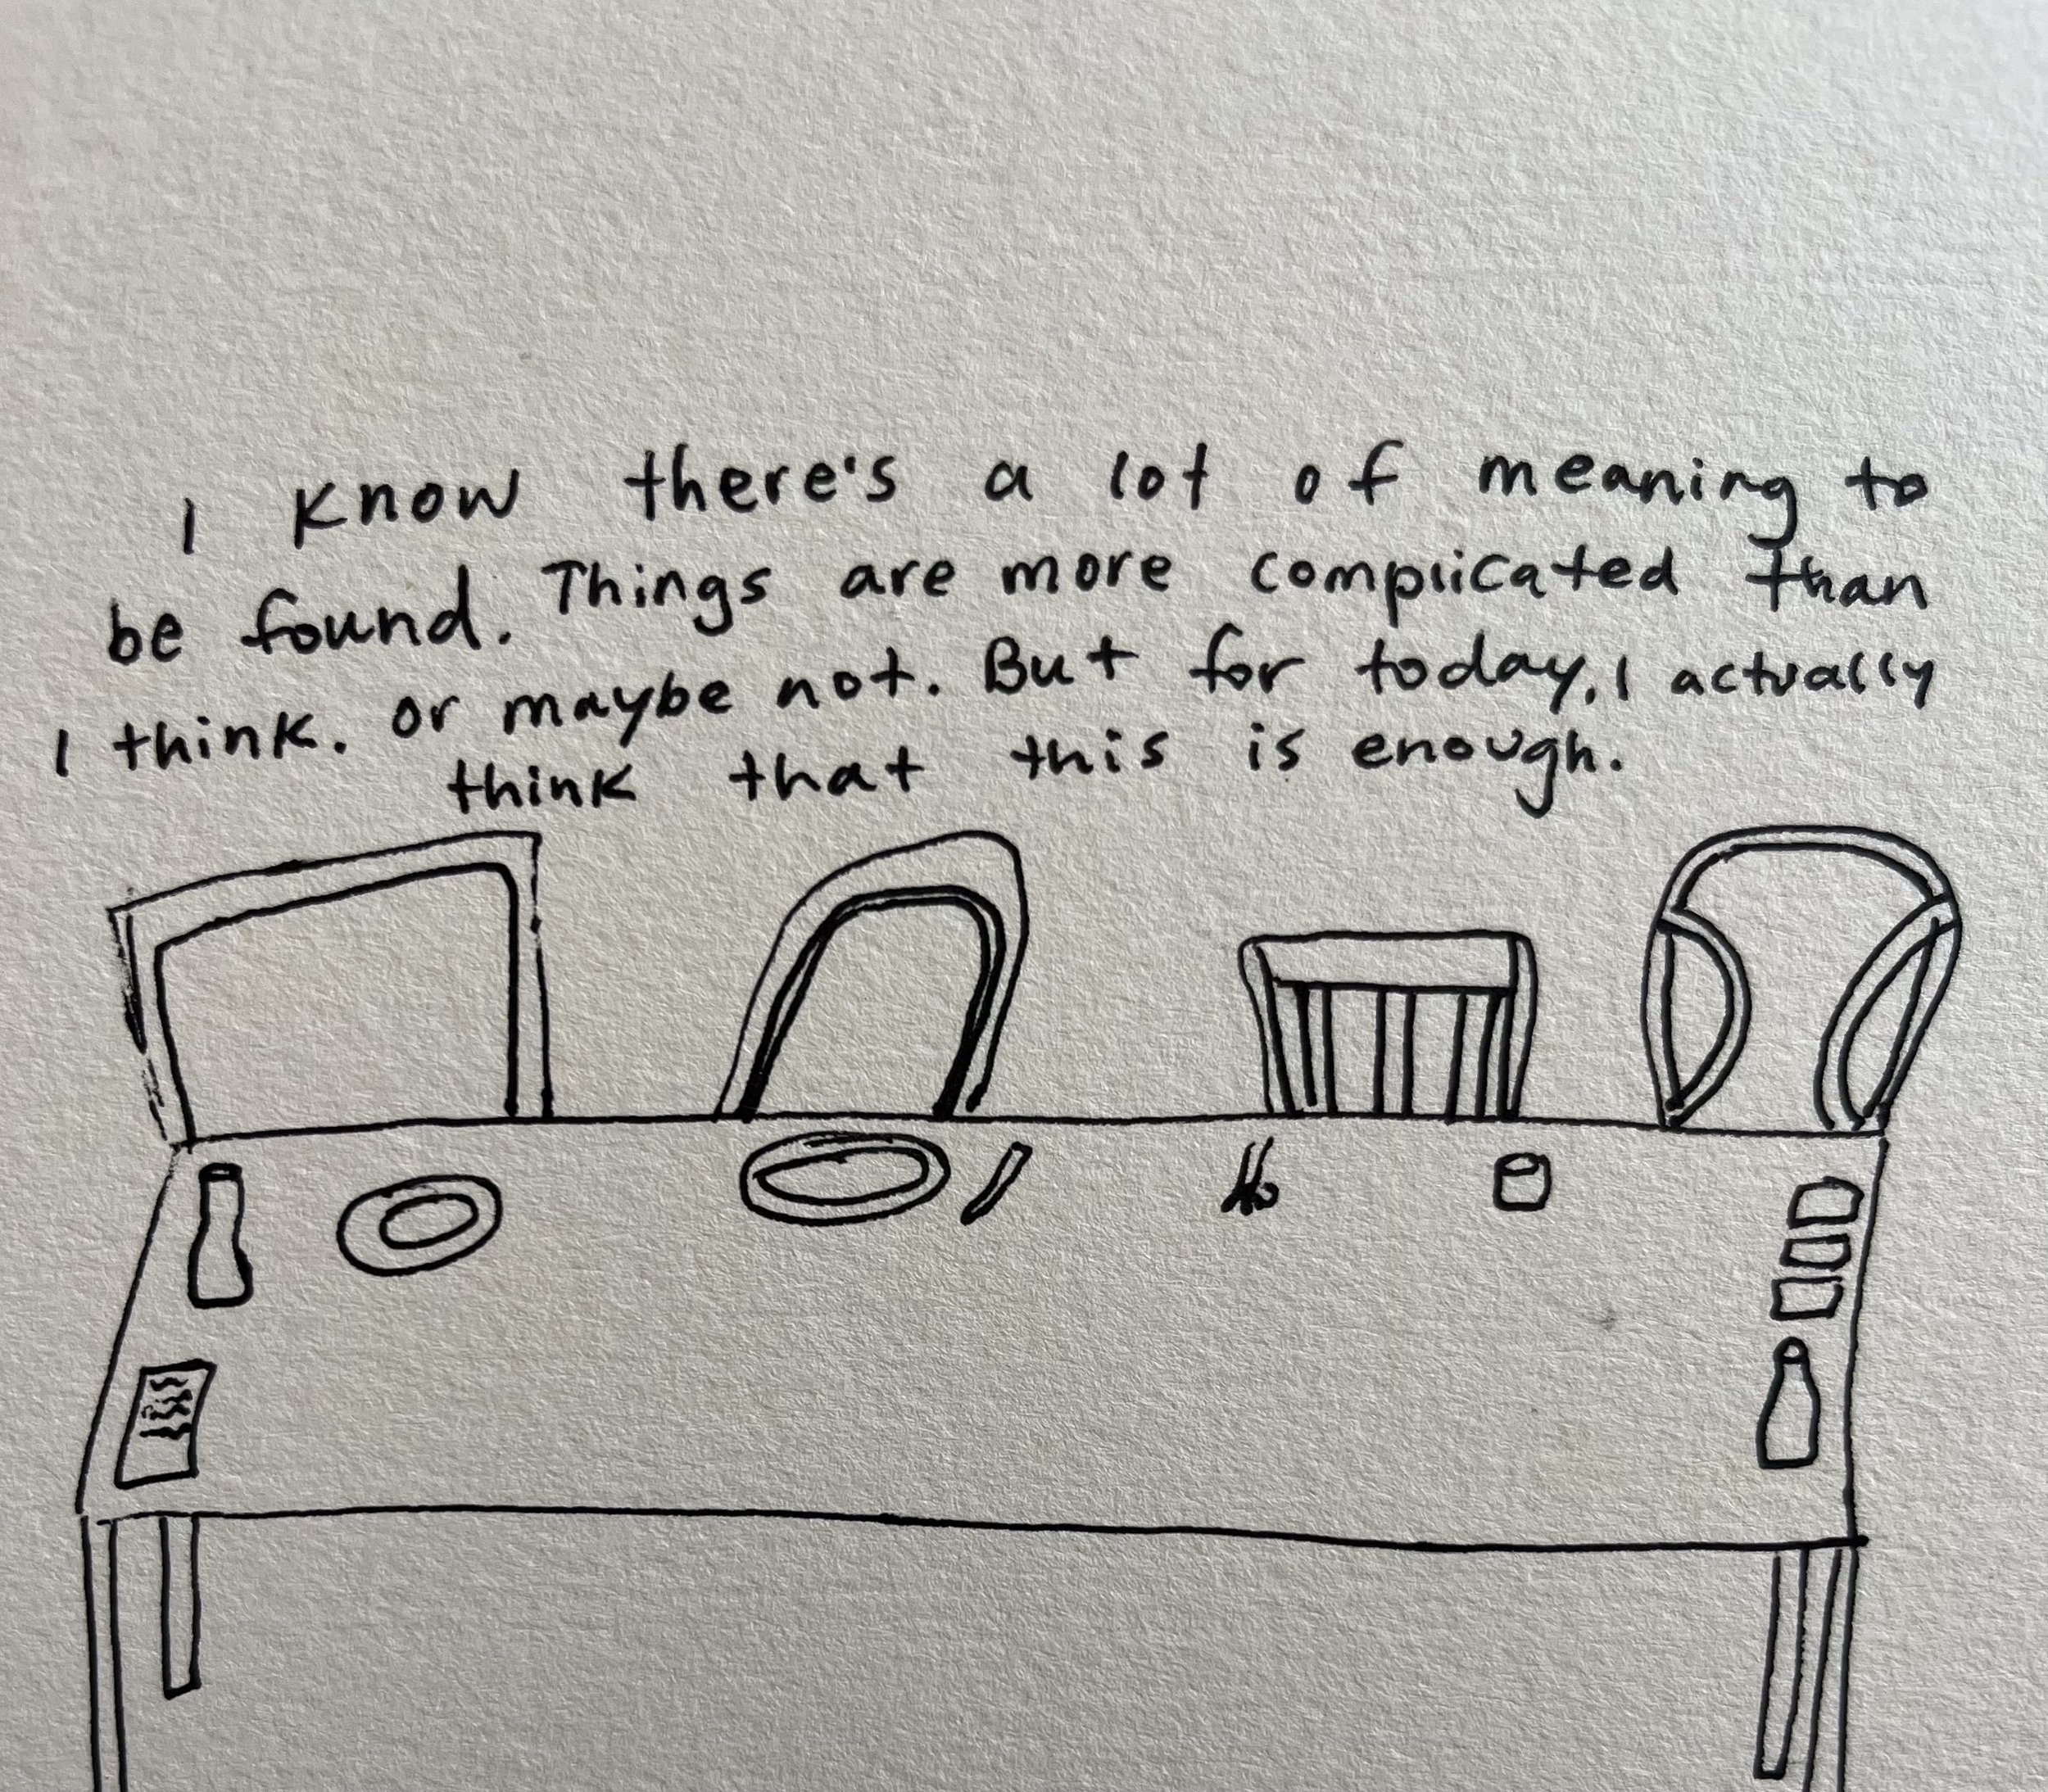 I know there's a lot of meaning to
be found. Things are more complicated than
I think. or maybe not. But for today, I actually
think that this is enough.